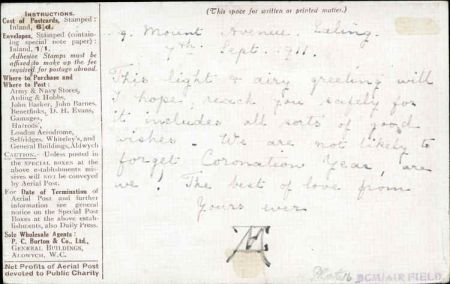 INSTRUCTIONS.
Cost of Postcards, Stamped:
Inland, 6½d.
Envelopes, Stamped (containing
special note paper):
Inland, 1/1.
Adhesive Stamps must be
affixed to make up the fee
required for postage abroad.
Where to Purchase and
Where to Post:
Army & Navy Stores,
Arding & Hobbs,
John Barker, John Barnes,
Benefinks, D. H. Evans,
Gamages,
Harrods',
London Aerodrome,
Selfridges, Whiteley's, and
General Buildings, Aldwych
CAUTION.—Unless posted in
the SPECIAL BOXES at the
above establishments missives
will NOT be conveyed
by Aerial Post.
For Date of Termination of
Aerial Post and further
information see general
notice on the Special Post
Boxes at the above establishments,
also Daily Press.
Sole Wholesale Agents:
P. C. Burton & Co., Ltd.,
GENERAL BUILDINGS,
ALDWYCH, W.C.
Net Profits of Aerial Post
devoted to Public Charity
(This space for written or printed matter.)
9 Mount Avenue Ealing.
7th Sept. 1911
This light & airy greeting will
I hope reach you safely for
it includes all sorts of good
wishes. We are not likely to
forget Coronation Year, are
we! The best of love from
Yours ever
BCM/AIR FIELD.